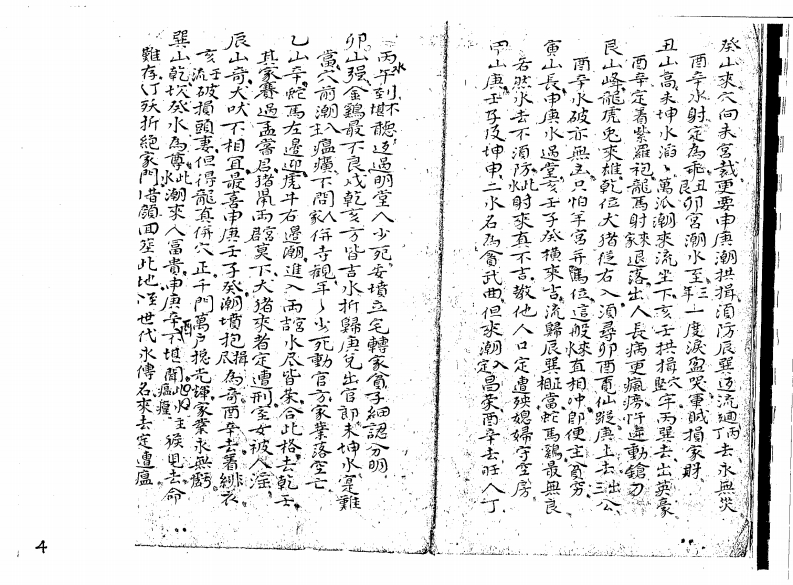 癸山來穴向未宮裁更要申庚潮拱揖消防辰巽返流廻丙丁去永無災
酉辛水射定為乖丑艮卯宮潮水至三年一度淚盈哭軍賊損家財
丑山高未坤水滔滔萬派潮來流坐下亥壬拱揖穴堅牢丙巽去出英豪
酉辛定著紫羅袍龍馬射來家退落出人長病更瘋癆忤逆動鎗刀
艮山峰龍虎兎來雄乾位大猪從右入須尋卯酉會仙蹤庚上去出三公
酉辛水破亦無主只怕羊宮并馬位這般水來直相冲即便主貧穷
寅山長申庚水過堂亥壬子癸橫來吉流歸辰巽相正當蛇馬鷄最無良
若然水去不消防此水射來真不吉教他人口定遭殃媳婦守空房
甲山庚壬子及坤申二水名為貪武曲但求潮入定昌榮酉辛去旺人丁
丙午水到不堪聽返過明堂人少死安墳立宅轉家貧子細認分明
卯山强金鷄最不良戌乾亥方皆吉水折歸庚兌出官郎未坤水寔難
當穴前潮入主瘟㾮不問人家併寺觀年年少死動官方家業落空亡
乙山辛蛇馬左邊迎虎牛右邊潮進入兩宮水尽皆吉合此格去乾壬
其家賽過孟嘗君猪鼠兩宮莫下大猪來者定遭刑室女被人淫
辰山奇犬吠不相宜最喜申庚壬子癸潮墳抱揖尽為奇酉辛去著緋衣
亥壬流破損頭妻但得龍真併穴正千門萬户挹光輝家業永無虧
巽山乾坎癸水為尊此水潮來人富貴申庚辛酉不堪聞此水主瘟㾮猴鬼去命
難存人丁殀折絕家門昔顔回葬此地
世代永傳名來去定遭瘟
4